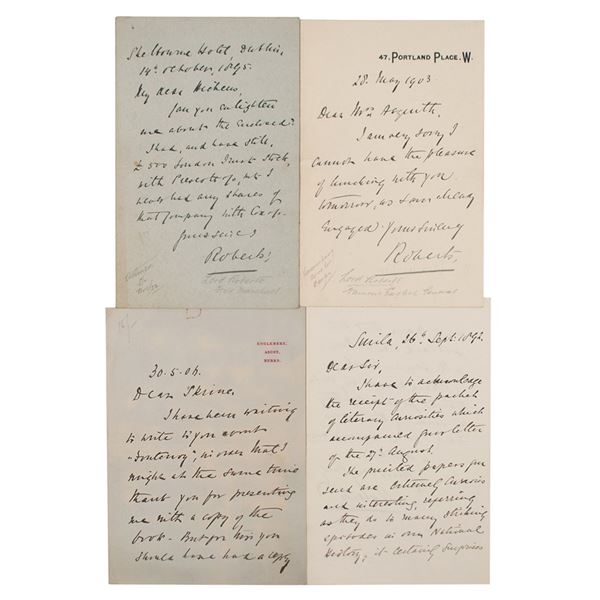 Shelbourne Hotel Dublin,
14th October, 1895.
My dear
Can you enlighten
me about the Enclosed?
I had, and have still,
£500 London Stock,
with & Co, but I
never had any shares of
that Company with Co
Yours sincerely
Roberts
Lord Roberts
Field Marshal
47, PORTLAND PLACE. W.
28. May 1903
Dear Mrs Asquith,
I am very sorry I
cannot have the pleasure
of lunching with you
tomorrow, as I am already
Engaged. Yours Sincerely
Roberts,
Lord Roberts
Famous English General
ENGLEMERE,
ASCOT,
BERKS.
30.5.06.
Dear Skrine,
I have been waiting
to write to you about
"Fontenoy", in order that I
might at the same time
thank you for presenting
me with a copy of the
book. But for this you
should have had a copy
Simla, 26th Sept. 1892.
Dear Sir,
I have to acknowledge
the receipt of the packet
of literary curiosities which
accompanied your letter
of the August.
The printed papers you
send are extremely curious
and interesting, referring
as they do to many striking
episodes in our National
History; it certainly surprises